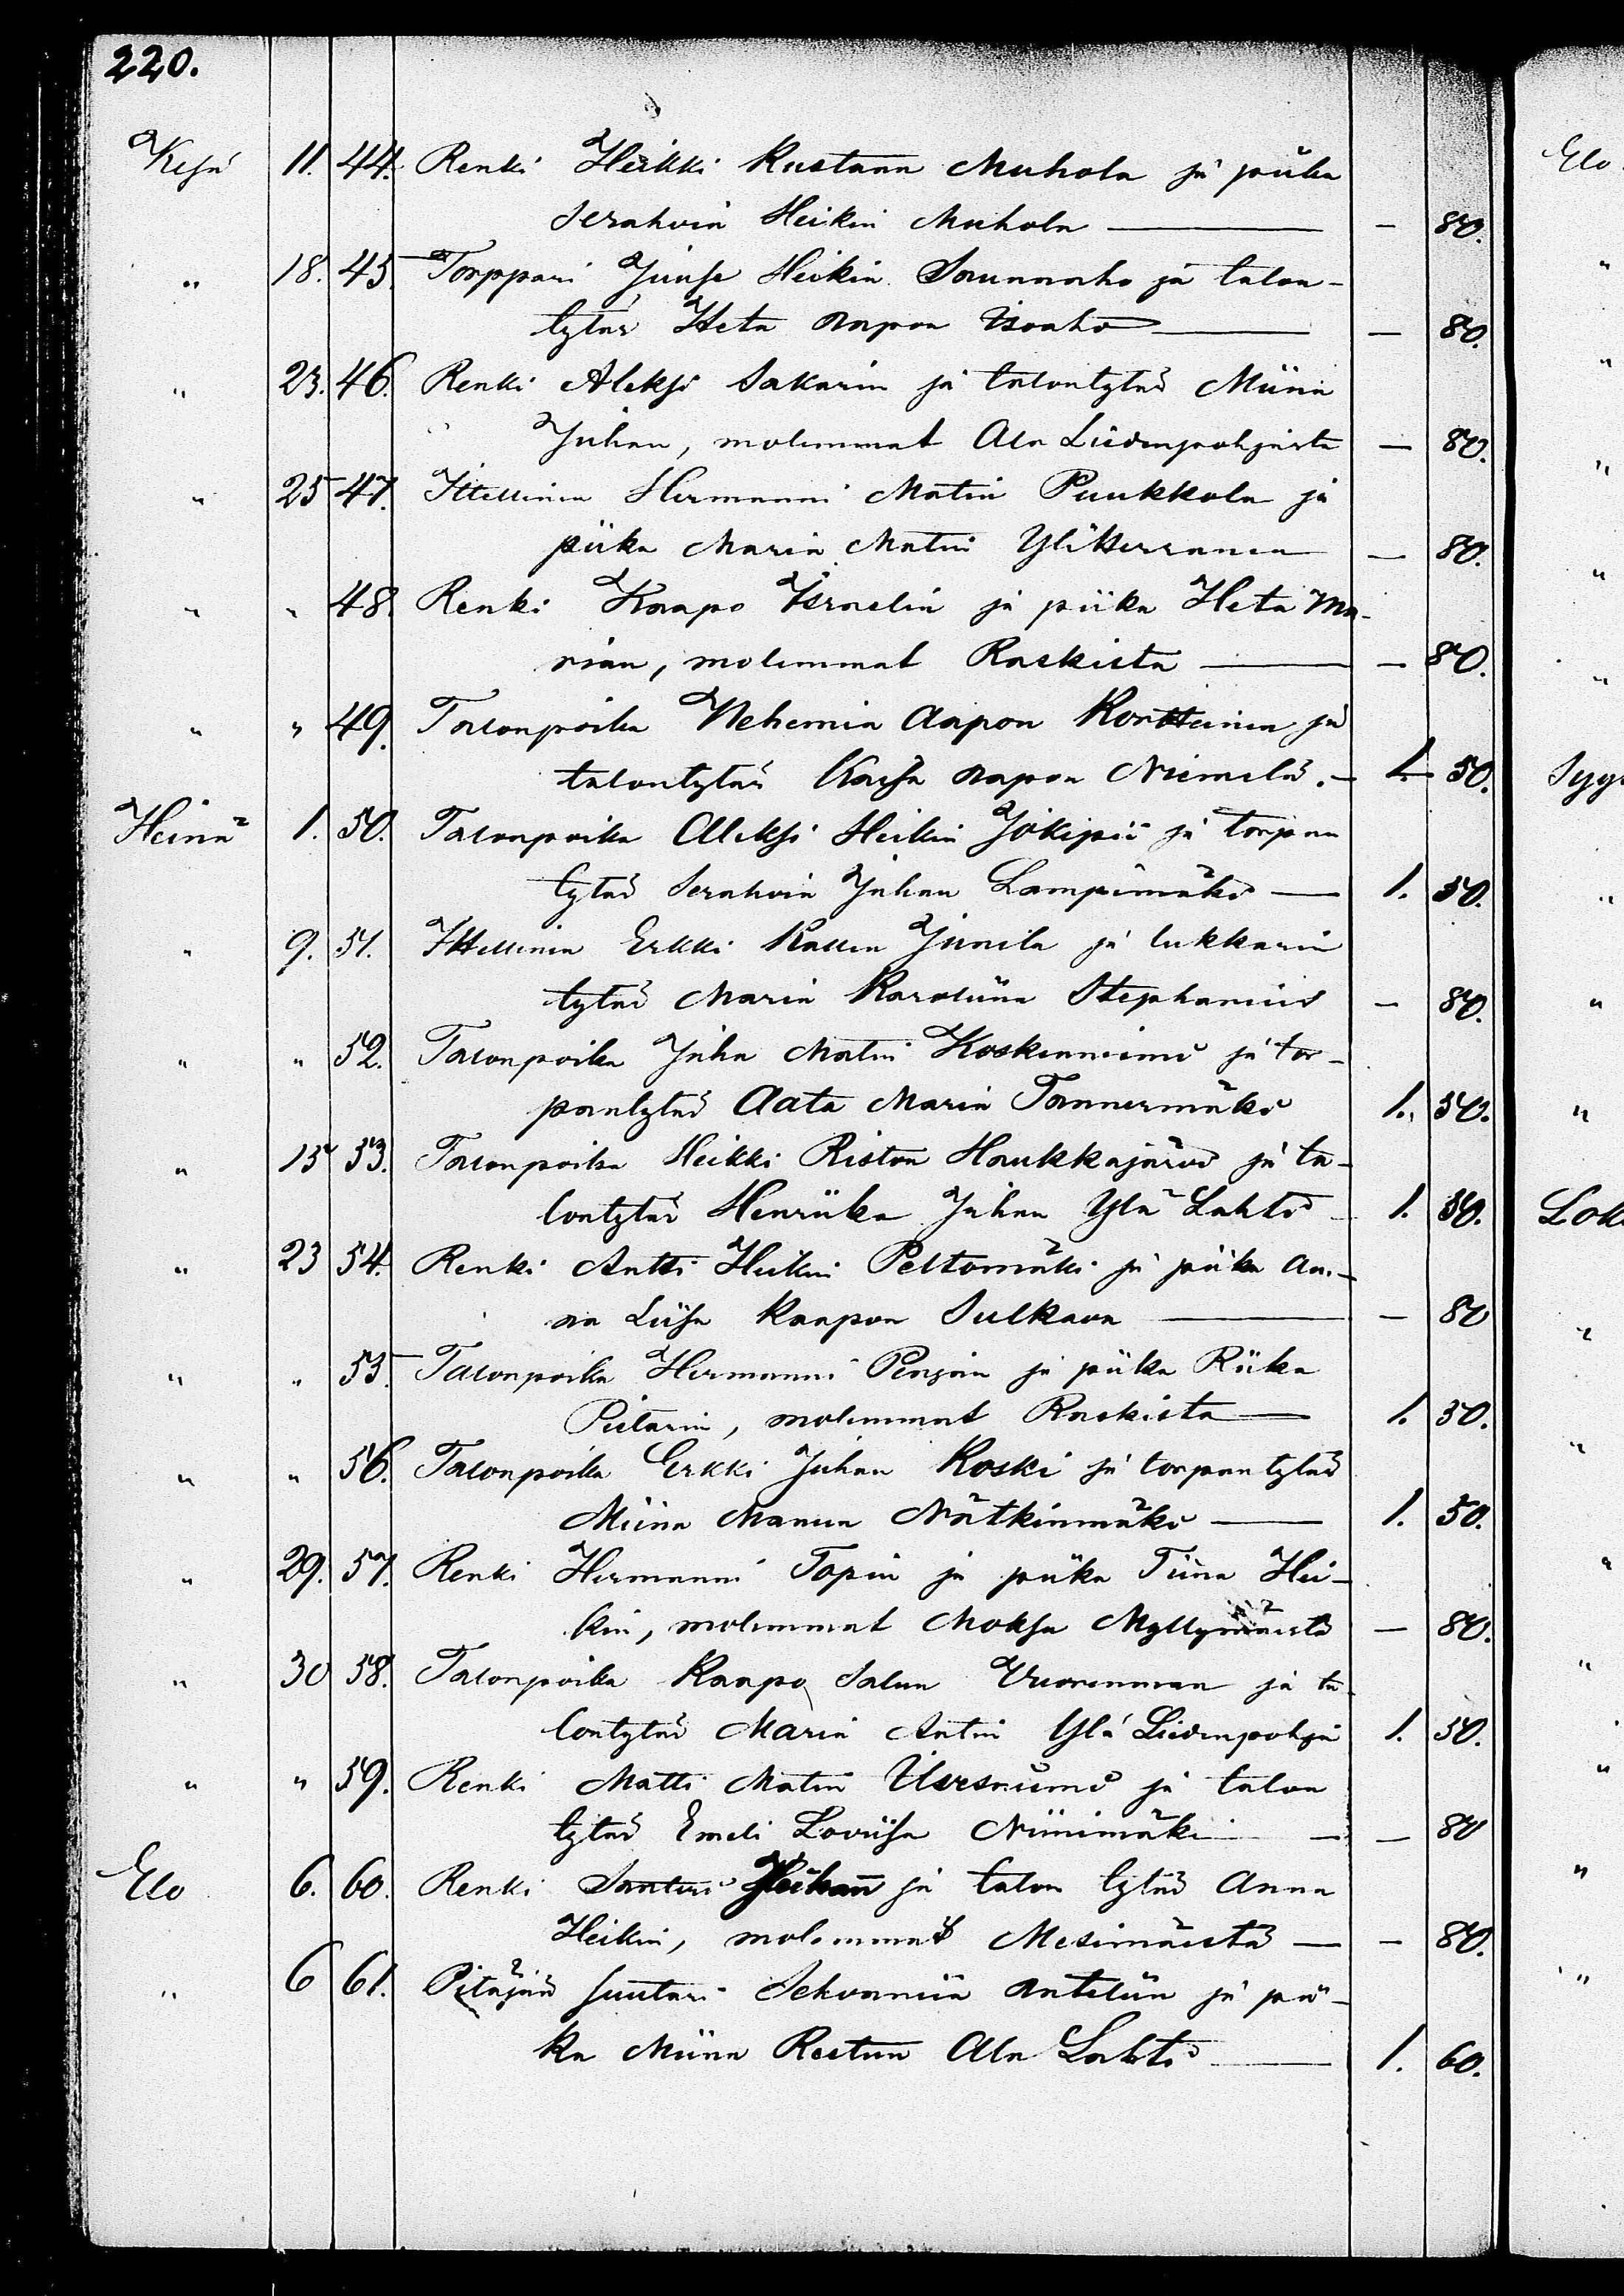 220.
Kesä 11. 44. Renki Heikki Kustaan Muhola ja piika
Serahvia Heikin Muhola — — 80.
" 18. 45 Torppari Juuse Heikin Saunanaho ja talon-
tytär Heta Aapon Isoaho — — 80.
" 23. 46. Renki Aleksi Sakarin ja talontytär Miina
Juhan, molemmat Ala Liedenpohjasta — 80.
" 25 47. Ittellinen Hermanni Matin Puukkola ja
piika Maria Matin Yliherranen — 80.
" " 48. Renki Kaapo Israelin ja piika Heta Ma-
rian, molemmat Raskista — — 80.
" " 49. Talonpoika Nehemia Aapon Kortteinen ja
talontytär Kaisa Aapon Niemelä. — 1. 50.
Heinä 1. 50. Talonpoika Aleksi Heikin Jokipii ja torpan
tytär Serahvia Juhan Lampimäki — 1. 50.
" 9. 51. Ittellinen Erkki Kallen Junila ja lukkarin
tytär Maria Karoliina Stephanius — 80.
" " 52. Talonpoika Juha Matin Koskenniemi ja tor-
pantytär Aata Maria Tannermäki 1. 50.
" 15 53. Talonpoika Heikki Riston Haukkajärvi ja ta-
lontytär Henriika Juhan Ylä Lahti 1. 50.
" 23 54. Renki Antti Heikin Peltomäki ja piika An-
na Liisa Kaapon Sulkava — — 80
" " 55. Talonpoika Hermanni Penjan ja piika Riika
Pietarin, molemmat Raskista — 1. 50.
" " 56. Talonpoika Erkki Juhan Koski ja torpantytär
Miina Manun Nätkinmäki — 1. 50.
" 29. 57. Renki Hermanni Topin ja piika Tiina Hei-
kin, molemmat Moksu Myllymäistä — 80.
" 30 58. Talonpoika Kaapo Salun Vuorenmaa ja ta
lontytär Maria Antin Ylä Liedenpohja 1. 50.
" " 59. Renki Matti Matin Uusniemi ja talon
tytär Emeli Loviisa Niinimäki — — 80
Elo 6. 60. Renki Santeri Juhan ja talon tytär Anna
Heikin, molemmat Mesimäistä — — 80.
" 6 61. Pitäjän suutari Sekvaniia Antelin ja pii-
ka Miina Restun Ala Lahti — 1. 60.
Elo
"
"
"
"
"
Syys
"
"
"
Lok
"
"
"
"
"
"
"